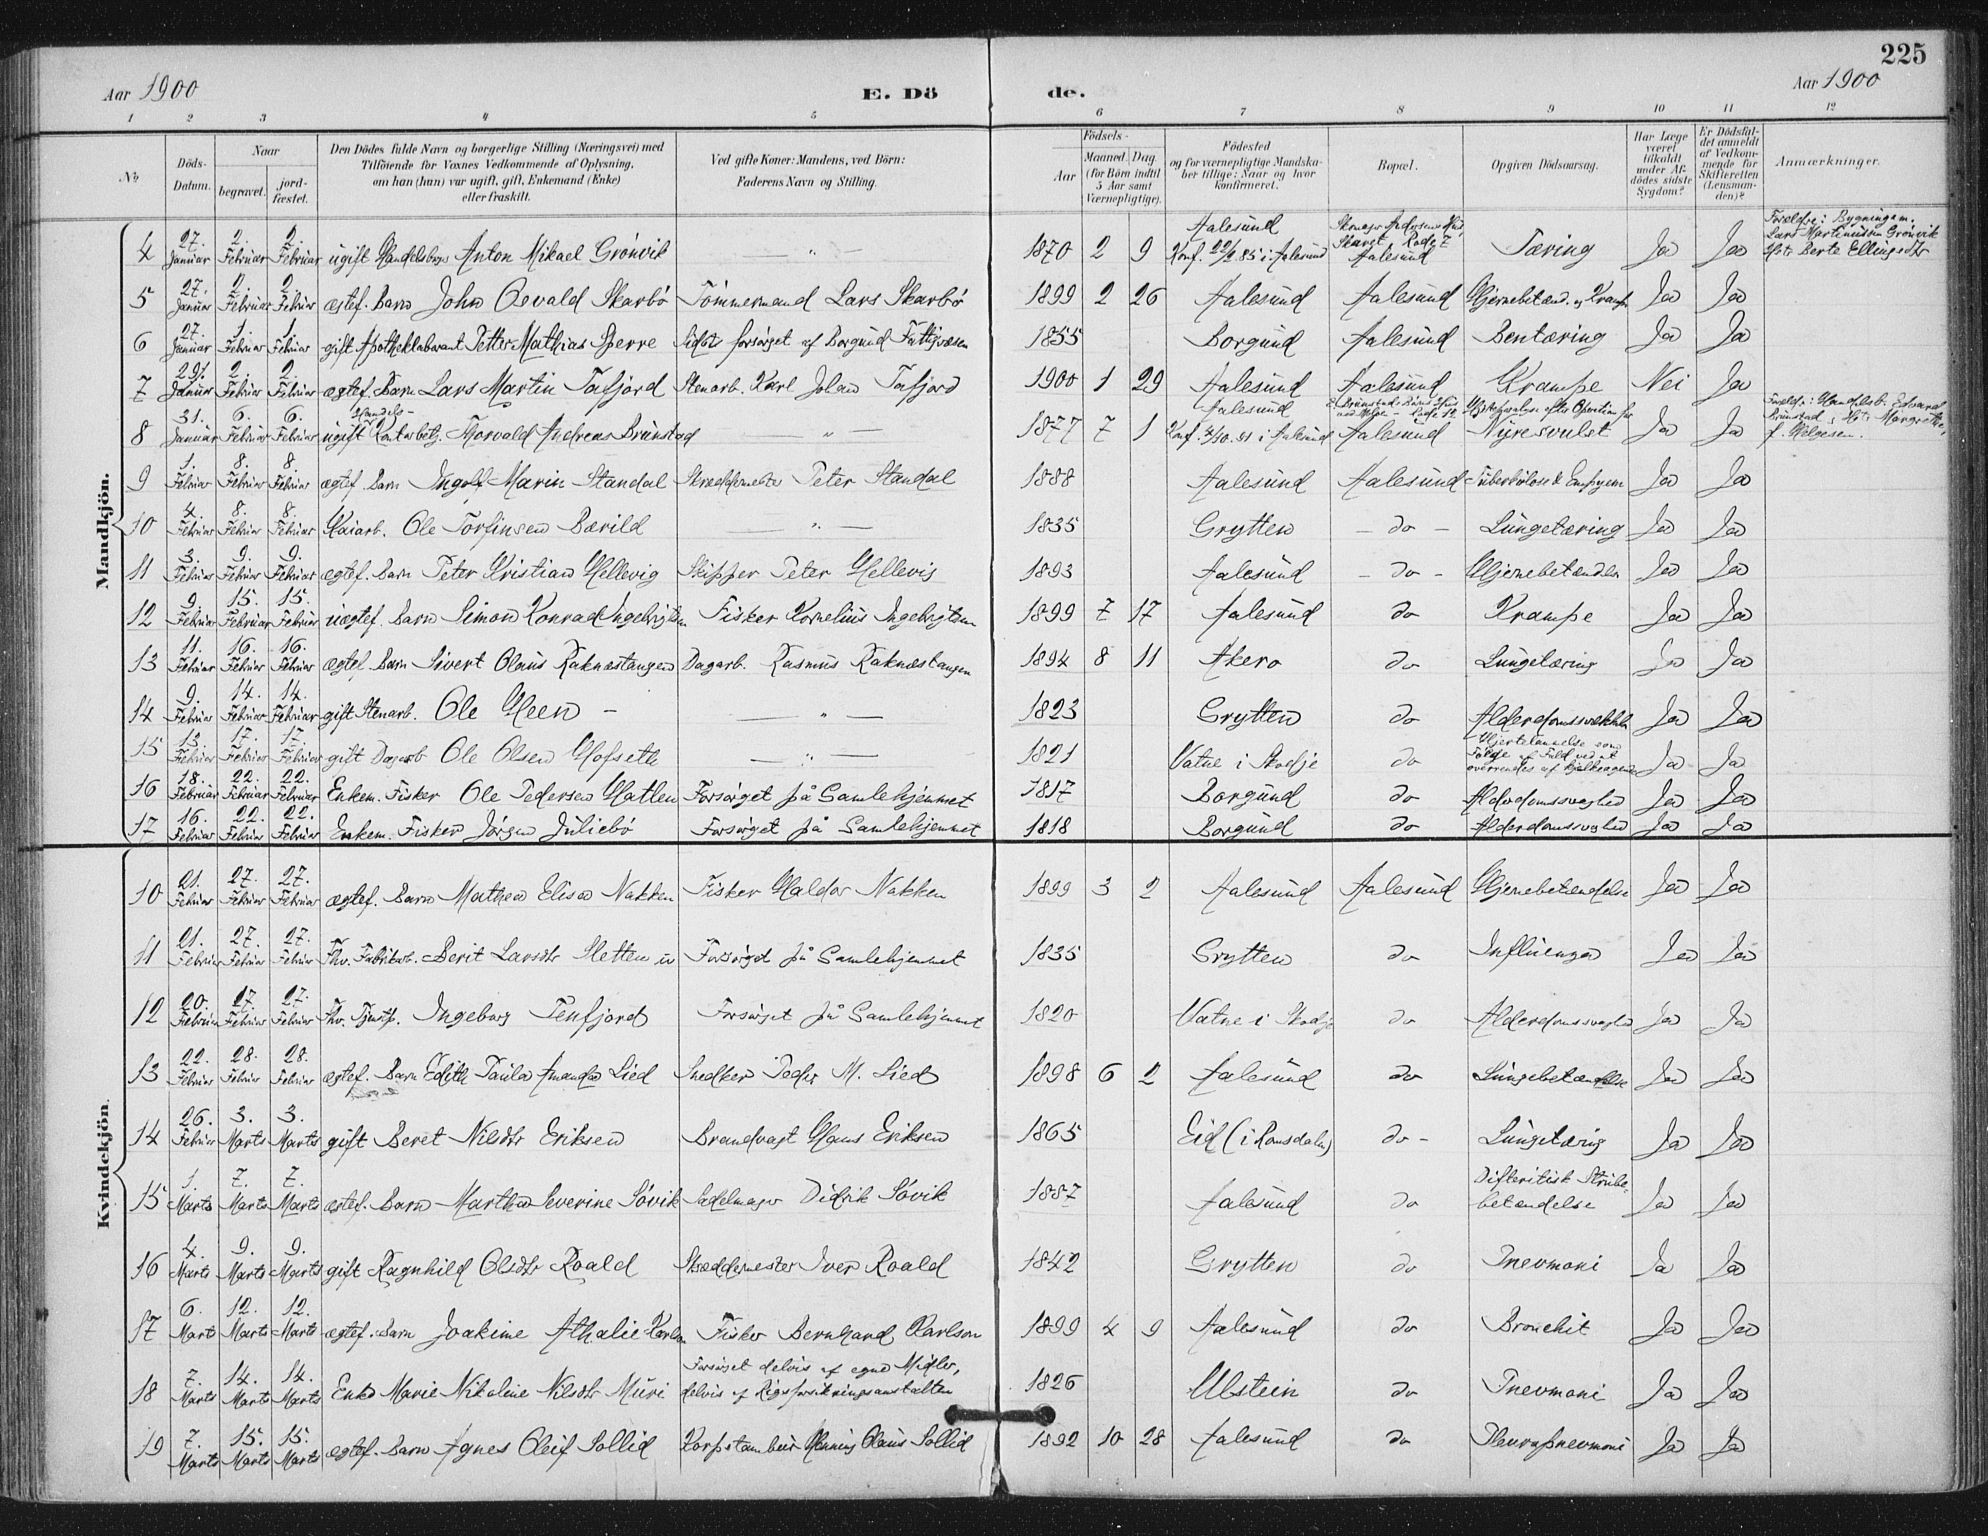 225
Aar 1900
E. Dö
de.
Aar 1900
1 2 3 4 5 6 7 8 9 10 11 12
No
Döds-Datum.
Naar
begravet.
jord-fæstet.
Den Dödes fulde Navn og borgerlige Stilling (Næringsvei) med
Tilföiende for Voxnes Vedkommende af Oplysning,
om han (hun) var ugift, gift, Enkemand (Enke)
eller fraskilt.
Ved gifte Koner: Mandens, ved Börn:
Faderens Navn og Stilling.
Födsels-
Aar
Maaned. Dag.
(for Börn indtil
5 Aar samt
Værnepligtige).
Födested
og for værnepligtige Mandska-
ber tillige: Naar og hvor
konfirmeret.
Bopæl.
Opgiven Dödsaarsag.
Har Læge
været
tilkaldt
under Af-
dödes sidste
Sygdom?
Er Dödsfal-
det anmeldt
af Vedkom-
mende for
Skifteretten
(Lensman-
den)?
Anmærkninger.
Mandkjön.
4 27. Januar 2. Februar 2. Februar ugift Anton Mikael Grönvik — " — 1870 2 9 Aalesund Konf. 85 i Aalesund Skaret Rode 7 Aalesund Tæring Ja Ja Forældre: Bygningsm. Lars Martinussen Grönvik Berte Ellingsdtr
5 27. Januar 2. Februar 2. Februar ægtef. Barn John Osvald Skarbö Tömmermand Lars Skarbö 1899 2 26 Aalesund Aalesund Hjernebetænd. og Krampe Ja Ja
6 27. Januar 1. Februar 1. Februar gift Apotheklaborant Petter Mathias Sperre Sidst forsörget af Borgund Fattigvæsen 1855 Borgund Aalesund Bentæring Ja Ja
7 29. Januar 2. Februar 2. Februar ægtef. Barn Lars Martin Tafjord Stenarb. Karl Johan Tafjord 1900 1 29 Aalesund Aalesund Krampe Nei Ja
8 31. Januar 6. Februar 6. Februar ugift Handels- Thorvald Andreas Brünstad — " — 1877 7 1 Aalesund Konf. i Aalesund Aalesund Nyresvulst Ja Ja Forældre: Edvard Brünstad f. Helgesen.
9 1. Februar 8. Februar 8. Februar ægtef. Barn Ingolf Marin Standal Skræddermester Peter Standal 1888 Aalesund Aalesund Tuberkulose & Empyem Ja Ja
10 4. Februar 8. Februar 8. Februar Kaiarb. Ole Torfinsen Bærild — " — 1835 Grytten — do — Lungetæring Ja Ja
11 3. Februar 9. Februar 9. Februar ægtef. Barn Peter Kristian Hellevig Skipper Peter Hellevig 1893 Aalesund — do — Hjernebetændelse Ja Ja
12 9. Februar 15. Februar 15. Februar uægtef. Barn Simon Konrad Ingebrigtsen Fisker Kornelius Ingebrigtsen 1899 7 17 Aalesund do Krampe Ja Ja
13 11. Februar 16. Februar 16. Februar ægtef. Barn Sivert Olaus Raknestangen Dagarb. Rasmus Raknæstangen 1894 8 11 Akerø do Lungetæring Ja Ja
14 9. Februar 14. Februar 14. Februar gift Stenarb. Ole Heen — — " — 1823 Grytten do Alderdomssvækkelse Ja Ja
15 13. Februar 17. Februar 17. Februar gift Dagarb Ole Olsen Hofseth — " — 1821 Vatne i Skodje do Hjertelammelse som Fölge af Fald ved at overrendes af Kjælkeagende Ja Ja
16 18. Februar 22. Februar 22. Februar Enkem. Fisker Ole Pedersen Hatlen Forsörget på Samlehjemmet 1817 Borgund do Alderdomssvaghed Ja Ja
17 16. Februar 22. Februar 22. Februar Enkem. Fisker Jörgen Juliebö Forsörget på Samlehjemmet 1818 Borgund do Alderdomssvaghed Ja Ja
Kvindekjön.
10 21. Februar 27. Februar 27. Februar ægtef. Barn Mathea Elisa Nakken Fisker Haldor Nakken 1899 3 2 Aalesund Aalesund Hjernebetændelse Ja Ja
11 21. Februar 27. Februar 27. Februar Fhv. Fabrikarb. Berit Larsdtr Sletten u Forsörget på Samlehjemmet 1835 Grytten do Influenza Ja Ja
12 20. Februar 27. Februar 27. Februar Fhv. Tjenstp. Ingeborg Tenfjord Forsörget på Samlehjemmet 1820 Vatne i Skodje do Alderdomssvaghed Ja Ja
13 22. Februar 28. Februar 28. Februar ægtef. Barn Edith Paula Amanda Lied Snedker Peder M. Lied 1898 6 2 Aalesund do Lungebetændelse Ja Ja
14 26. Februar 3. Marts 3. Marts gift Beret Nilsdtr Eriksen Brandvagt Hans Eriksen 1865 Eid (i Romsdalen) do — Lungetæring Ja Ja
15 1. Marts 7. Marts 7. Marts ægtef. Barn Marthea Severine Sövik Sadelmager Didrik Sövik 1887 Aalesund do Difteritisk Strube-betændelse Ja Ja
16 4. Marts 9. Marts 9. Marts gift Ragnhild Olsdtr Roald Skræddermester Iver Roald 1842 Grytten do Pnevmoni Ja Ja
17 6. Mart 12. Marts 12. Marts ægtef. Barn Joakime Athalie Karlsen Fisker Bernhard Karlson 1899 4 9 Aalesund do Bronchit Ja Ja
18 7. Marts 14. Marts 14. Marts Enke Marie Nikoline Nilsdtr Muri Forsörget delvis af egne Midler, delvis af Rigsforsikringsanstalten 1826 Ulstein do Pnevmoni Ja Ja
19 7. Marts 15. Marts 15. Marts ægtef. Barn Agnes Oleif Sollid Korpstambur Henning Olaus Sollid 1892 10 28 Aalesund do Pleuropnevmoni Ja Ja